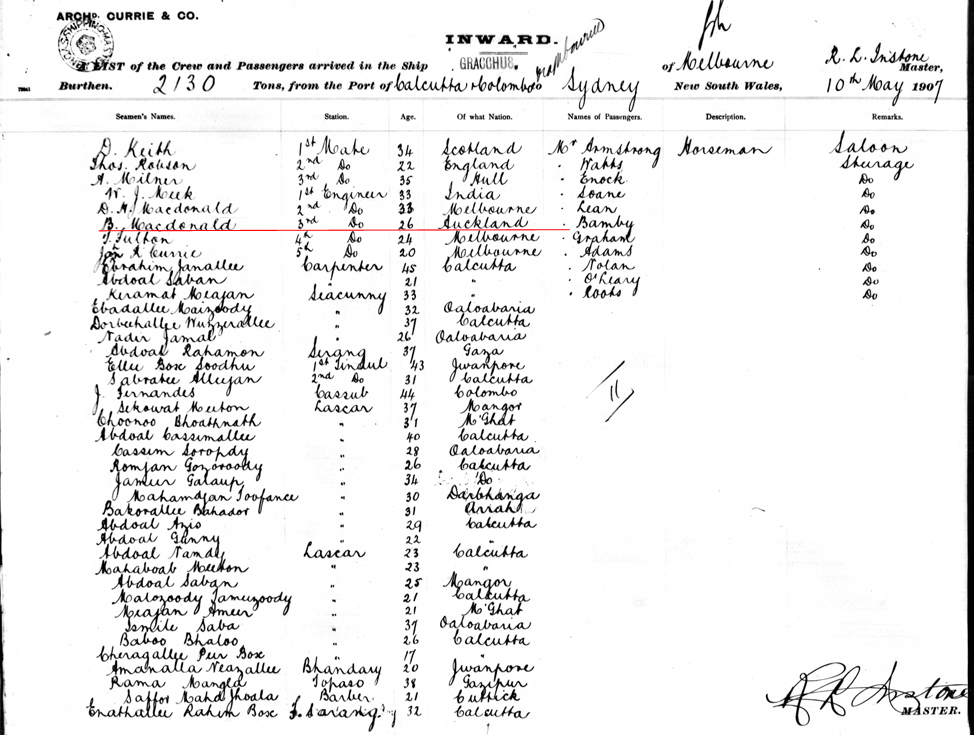 ARCHD. CURRIE & CO.
INWARD.
A LIST of the Crew and Passengers arrived in the Ship GRACCHUS, from Melbourne of Melbourne R. L. Instone Master,
Burthen. 2130 Tons, from the Port of Calcutta & Colombo to Sydney New South Wales, 10th May 1907
Seamen's Names. Station. Age. Of what Nation. Names of Passengers. Description. Remarks.
D. Keith 1st Mate 34 Scotland Mr Armstrong Horseman Saloon
Thos. Robson 2nd Do 22 England " Watts Sturage
A. Milner 3rd Do 35 Hull " Enock Do
W. J. Meek 1st Engineer 33 India " Soane Do
D. H. Macdonald 2nd Do 33 Melbourne " Lean Do
B. Macdonald 3rd Do 26 Auckland " Bamby Do
T. Fulton 4th Do 24 Melbourne " Graham Do
Jon R Currie 5th Do 20 Melbourne " Adams Do
Ebrahim Janallee Carpenter 45 Calcutta " Nolan Do
Abdoal Saban 21 " " O'Leary Do
Keramat Meajan Seacunny 33 " " Roots Do
Ebadallee Maizoody " 32 Oaloabaria
Dorbeehallee Wuhzerallee " 37 Calcutta
Nadir Jamal " 26 Oaloabaria
Abdoal Rahamon Serang 37 Gaza
Ellee Box Soodhu 1st Tindul 43 Jwanpore
Sabratee Alleejan 2nd Do 31 Calcutta
J. Fernandes Cassub 44 Colombo
Sekowat Meeton Lascar 37 Mangor
Choonoo Bhoathnath " 31 M'Ghat
Abdoal Cassimallee " 40 Calcutta
Cassim Soropdy " 28 Oaloabaria
Romjan Gozoroody " 26 Calcutta
Jameer Galaup " 34 Do
Mahamdjan Toofance " 30 Darbhanga
Bakorallee Bahador " 31 Arrah
Abdoal Azis " 29 Calcutta
Abdoal Gunny " 22 "
Abdoal Namdy Lascar 23 Calcutta
Mahaboab Meeton " 23 "
Abdoal Saban " 25 Mangor
Malozoody Jamuzoody " 21 Calcutta
Meajan Ameer " 21 M'Ghat
Ismile Saba " 37 Oaloabaria
Baboo Bhaloo " 26 Calcutta
Cheragallee Peer Box " 17 "
Amanalla Neazallee Bhandary 20 Jwanpore
Rama Mangla Topaso 38 Gazipur
Saffor Mahd Jhoala Barber 21 Cuttick
Enathallee Rahim Box F. Sarang 32 Calcutta
11
R L Instone
MASTER.